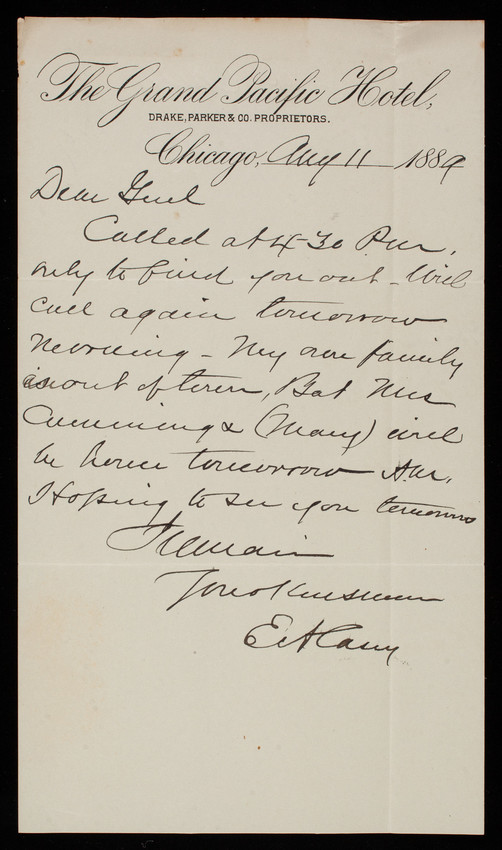 The Grand Pacific Hotel,
DRAKE, PARKER & CO. PROPRIETORS.
Chicago, Aug 11 1889
Dear Genl
Called at 4-30 P.m.
only to find you out - Will
call again tomorrow
morning - My own family
is out of town, But Mrs
Cummings (Mary) will
be home tomorrow A.m.
Hoping to see you tomorrow
I remain
Your Kinsman
E A Casey